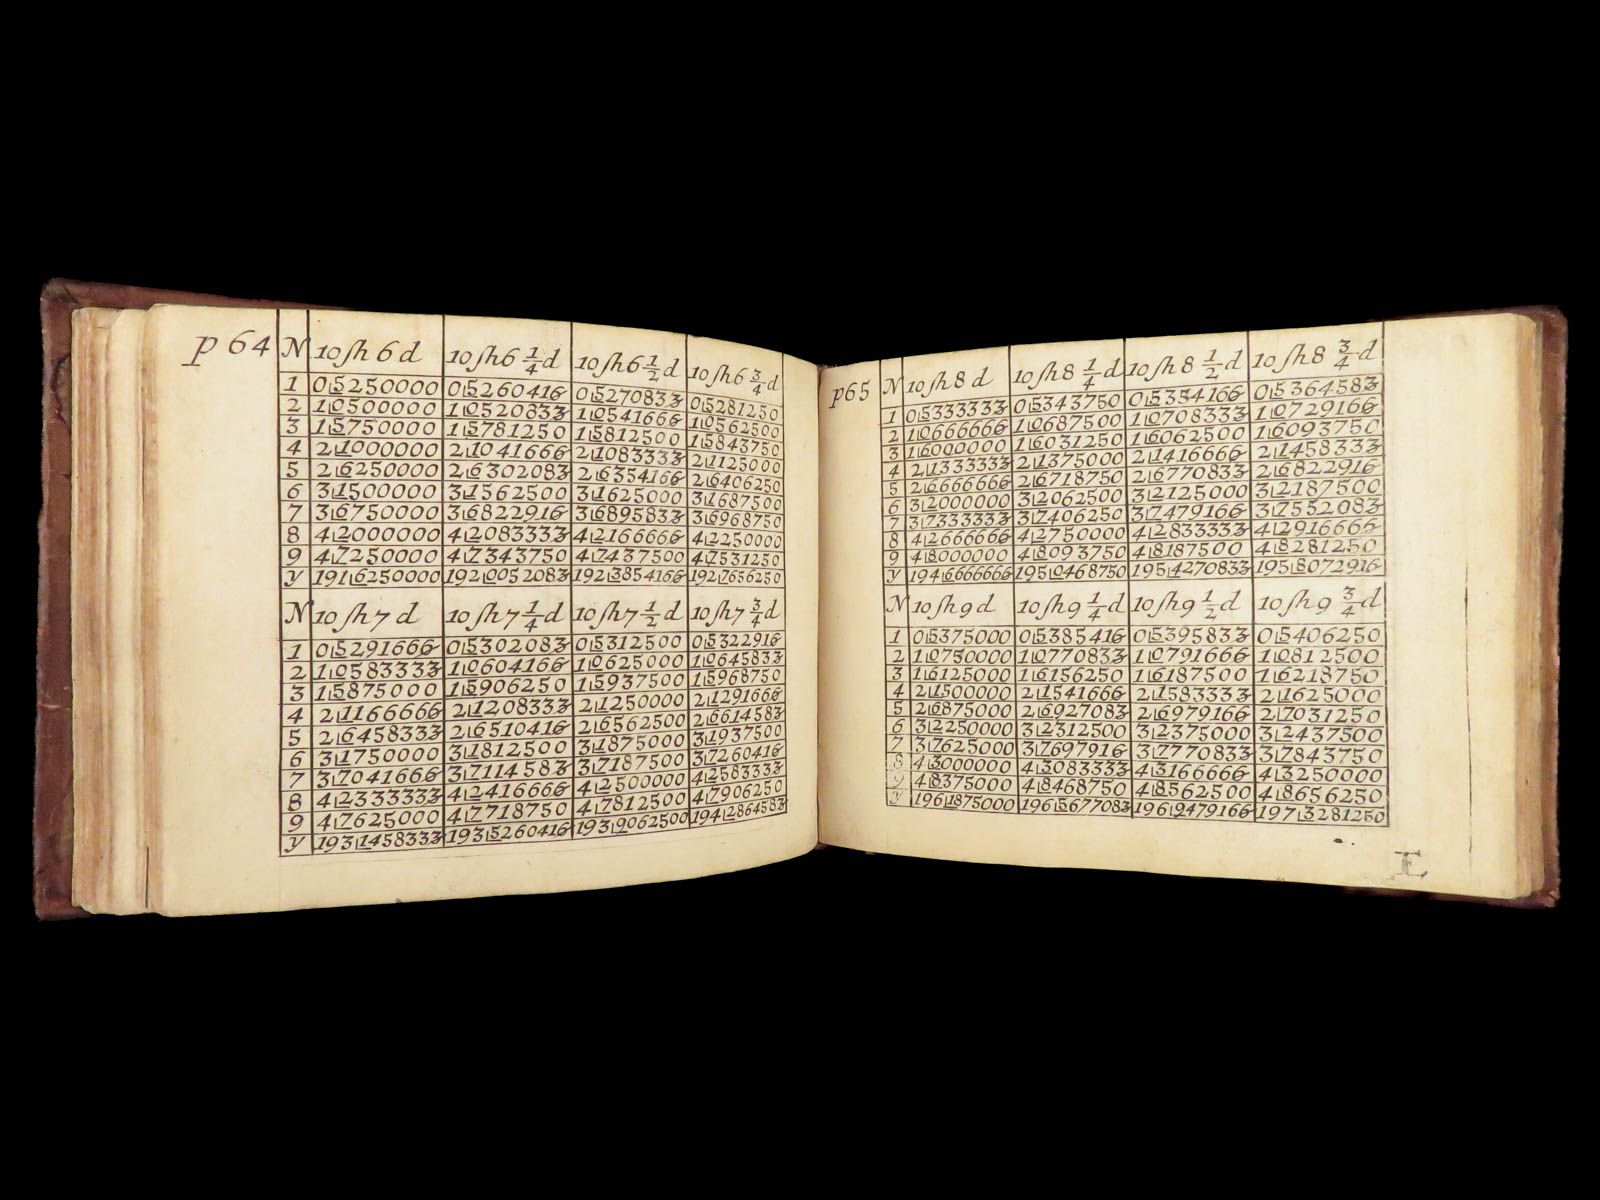 p 64 N 10 ſh 6 d 10 ſh 6 1/4 d 10 ſh 6 1/2 d 10 ſh 6 3/4 d
1 0⌊5250000 0⌊5260416 0⌊5270833 0⌊5281250
2 1⌊0500000 1⌊0520833 1⌊0541666 1⌊0562500
3 1⌊5750000 1⌊5781250 1⌊5812500 1⌊5843750
4 2⌊1000000 2⌊1041666 2⌊1083333 2⌊1125000
5 2⌊6250000 2⌊6302083 2⌊6354166 2⌊6406250
6 3⌊1500000 3⌊1562500 3⌊1625000 3⌊1687500
7 3⌊6750000 3⌊6822916 3⌊6895833 3⌊6968750
8 4⌊2000000 4⌊2083333 4⌊2166666 4⌊2250000
9 4⌊7250000 4⌊7343750 4⌊7437500 4⌊7531250
y 191⌊6250000 192⌊0052083 192⌊3854166 192⌊7656250
N 10 ſh 7 d 10 ſh 7 1/4 d 10 ſh 7 1/2 d 10 ſh 7 3/4 d
1 0⌊5291666 0⌊5302083 0⌊5312500 0⌊5322916
2 1⌊0583333 1⌊0604166 1⌊0625000 1⌊0645833
3 1⌊5875000 1⌊5906250 1⌊5937500 1⌊5968750
4 2⌊1166666 2⌊1208333 2⌊1250000 2⌊1291666
5 2⌊6458333 2⌊6510416 2⌊6562500 2⌊6614583
6 3⌊1750000 3⌊1812500 3⌊1875000 3⌊1937500
7 3⌊7041666 3⌊7114583 3⌊7187500 3⌊7260416
8 4⌊2333333 4⌊2416666 4⌊2500000 4⌊2583333
9 4⌊7625000 4⌊7718750 4⌊7812500 4⌊7906250
y 193⌊1458333 193⌊5260416 193⌊9062500 194⌊2864583
p 65 N 10 ſh 8 d 10 ſh 8 1/4 d 10 ſh 8 1/2 d 10 ſh 8 3/4 d
1 0⌊5333333 0⌊5343750 0⌊5354166 0⌊5364583
2 1⌊0666666 1⌊0687500 1⌊0708333 1⌊0729166
3 1⌊6000000 1⌊6031250 1⌊6062500 1⌊6093750
4 2⌊1333333 2⌊1375000 2⌊1416666 2⌊1458333
5 2⌊6666666 2⌊6718750 2⌊6770833 2⌊6822916
6 3⌊2000000 3⌊2062500 3⌊2125000 3⌊2187500
7 3⌊7333333 3⌊7406250 3⌊7479166 3⌊7552083
8 4⌊2666666 4⌊2750000 4⌊2833333 4⌊2916666
9 4⌊8000000 4⌊8093750 4⌊8187500 4⌊8281250
y 194⌊6666666 195⌊0468750 195⌊4270833 195⌊8072916
N 10 ſh 9 d 10 ſh 9 1/4 d 10 ſh 9 1/2 d 10 ſh 9 3/4 d
1 0⌊5375000 0⌊5385416 0⌊5395833 0⌊5406250
2 1⌊0750000 1⌊0770833 1⌊0791666 1⌊0812500
3 1⌊6125000 1⌊6156250 1⌊6187500 1⌊6218750
4 2⌊1500000 2⌊1541666 2⌊1583333 2⌊1625000
5 2⌊6875000 2⌊6927083 2⌊6979166 2⌊7031250
6 3⌊2250000 3⌊2312500 3⌊2375000 3⌊2437500
7 3⌊7625000 3⌊7697916 3⌊7770833 3⌊7843750
8 4⌊3000000 4⌊3083333 4⌊3166666 4⌊3250000
9 4⌊8375000 4⌊8468750 4⌊8562500 4⌊8656250
y 196⌊1875000 196⌊5677083 196⌊9479166 197⌊3281250